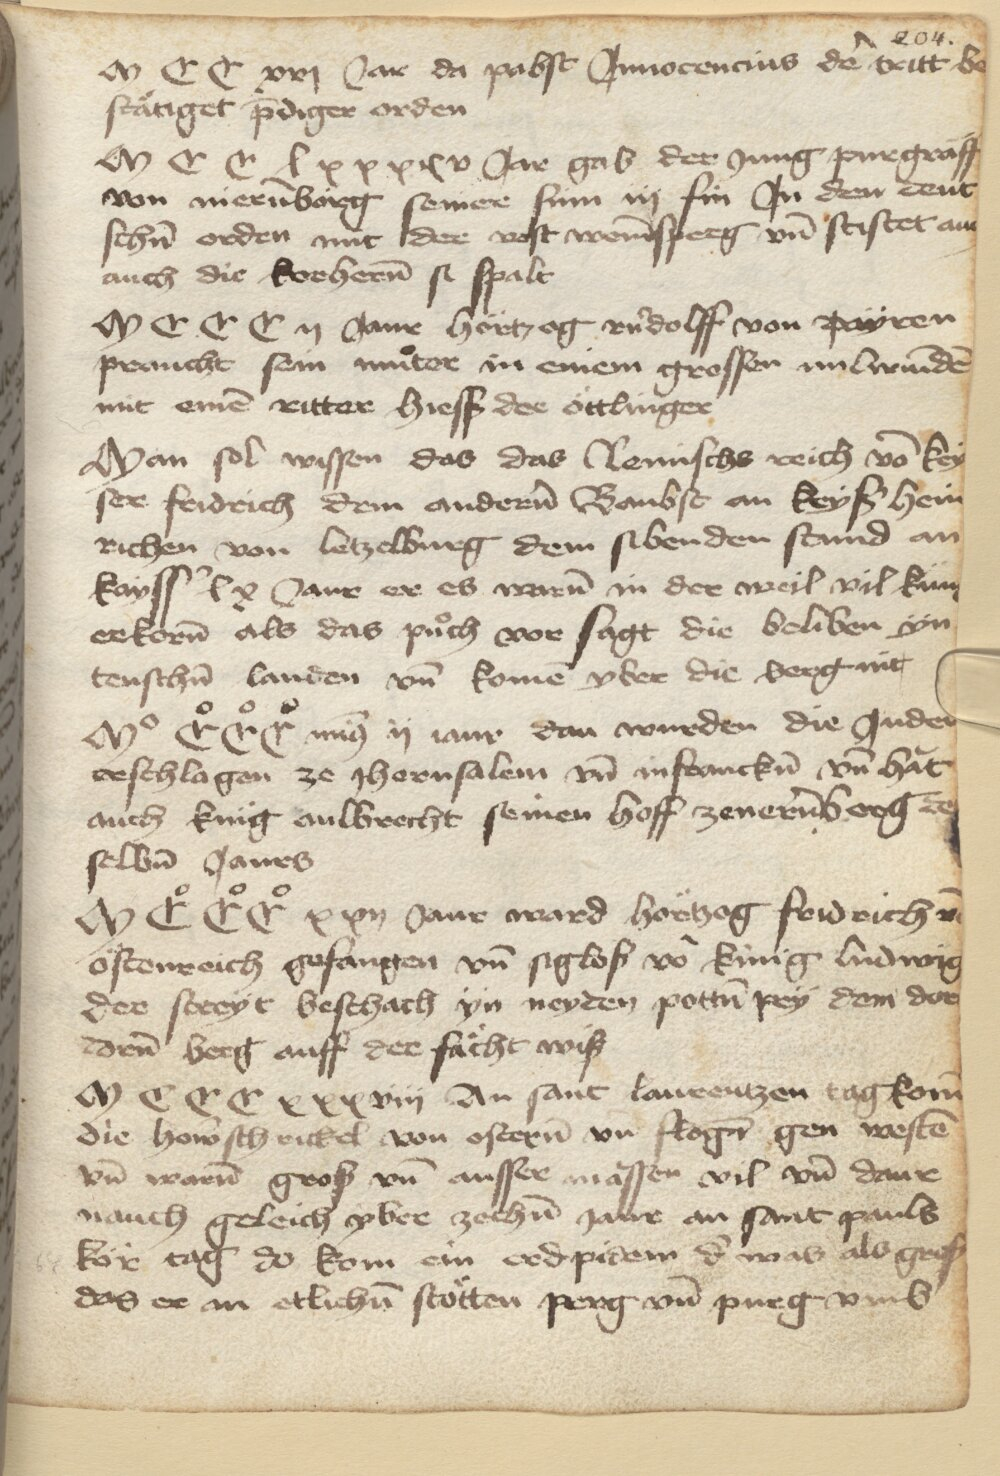 204.
M CC xvj Jar da pabst Jnnocencius de᷑ tritt be
stätiget p̄diger orden
M C C l x x x x v Jar gab der Jung purgraff
von nierūberg seiner sun iij sin Jn den teut
schñ orden mit der vest wernsperg vñ stiftet auch
auch die korherñ zi spalt
M C C C ij Jaur hörtzog růdolff von päyren
praucht sein můter in einem grossen
mit einē ritter hiesß der öttlinger
Man sol wissen das das Remischs reich vō key
ser fridrich dem anderñ Baubst an keyß hein
richen von letzelburg dem sibenden stund an
kayss᷑ lx Jaur er es warñ in der weil vil küng
erkorñ als das půch vor sagt die beliben yn
teuschñ landen vñ komē yber die berg nit
Mº Cº Cº Cº ij iaur dan wurden die Juden
erschlagen ze Jherusalem vñ infranckñ vñ hāt
auch kung aulbrecht seinen hoff zenerūberg de
selbñ Jaurs
M Cº Cº Cº xxij Jaur ward hörtzog fridreich vō
östenreich gefangen vñ siglos vō künig ludwig
der streyt beschach yn neyden pottñ pey dem dor
dorñ berg auff der fächt wiß
M C C C xxxviij An sant laurentzen tag kom̄
die howschrickel von osterñ vñ flogñ gen westē
vñ warñ groß vñ ausser mässen vil vñ daur
nauch geleich yber zechñ Jaur an sant pauls
kör tag do kom ein erdpidem d᷑ was als groß
das er an etlichñ stötten perg vñ purg vmb